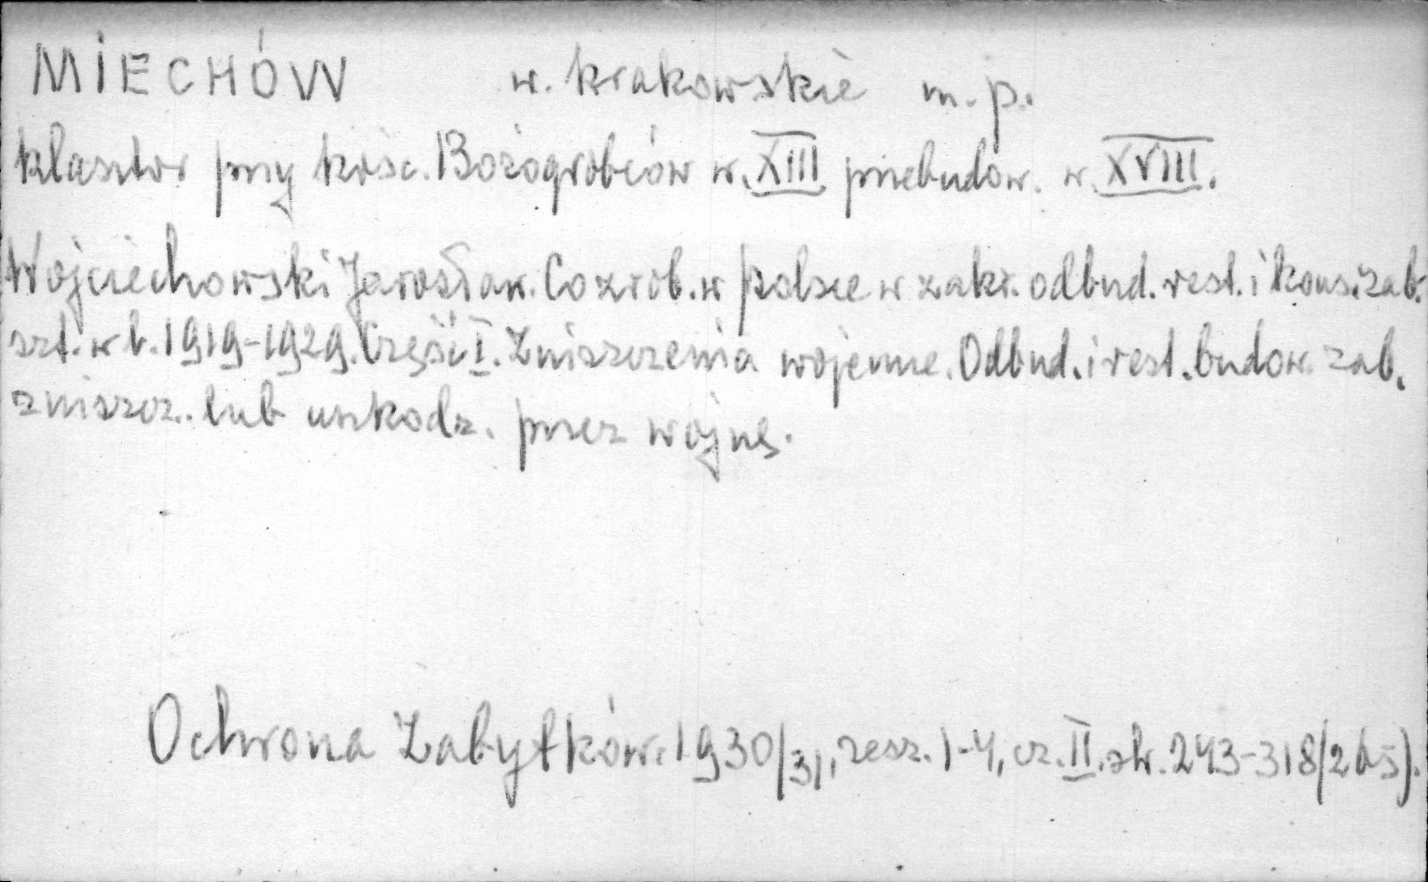 MIECHÓW w. krakowskie m. p.
klasztor przy kośc. Bożogrobców w. XIII przebudow. w. XVIII.
Wojciechowski Jarosław. Co zrob. w Polsce w zakr. odbud. rest. i kons. zab.
szt. w l. 1919-1929. Część I. Zniszczenia wojenne. Odbud. i rest. budow. zab.
zniszcz. lub uszkodz. przez wojnę.
Ochrona Zabytków. 1930/31, zesz. 1-4, cz. II. str. 243-318/265).